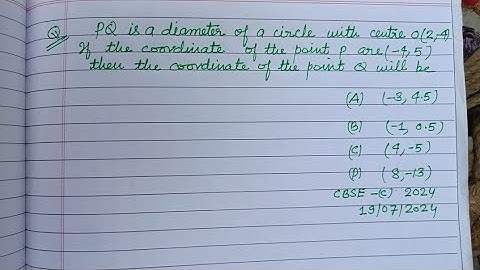 Q. PQ is a diameter of a circle with centre O(2,-4)
If the coordinate of the point P are (-4,5)
then the coordinate of the point Q will be
(A) (-3, 4.5)
(B) (-1, 0.5)
(C) (4, -5)
(D) (8, -13)
CBSE -(C) 2024
19/07/2024